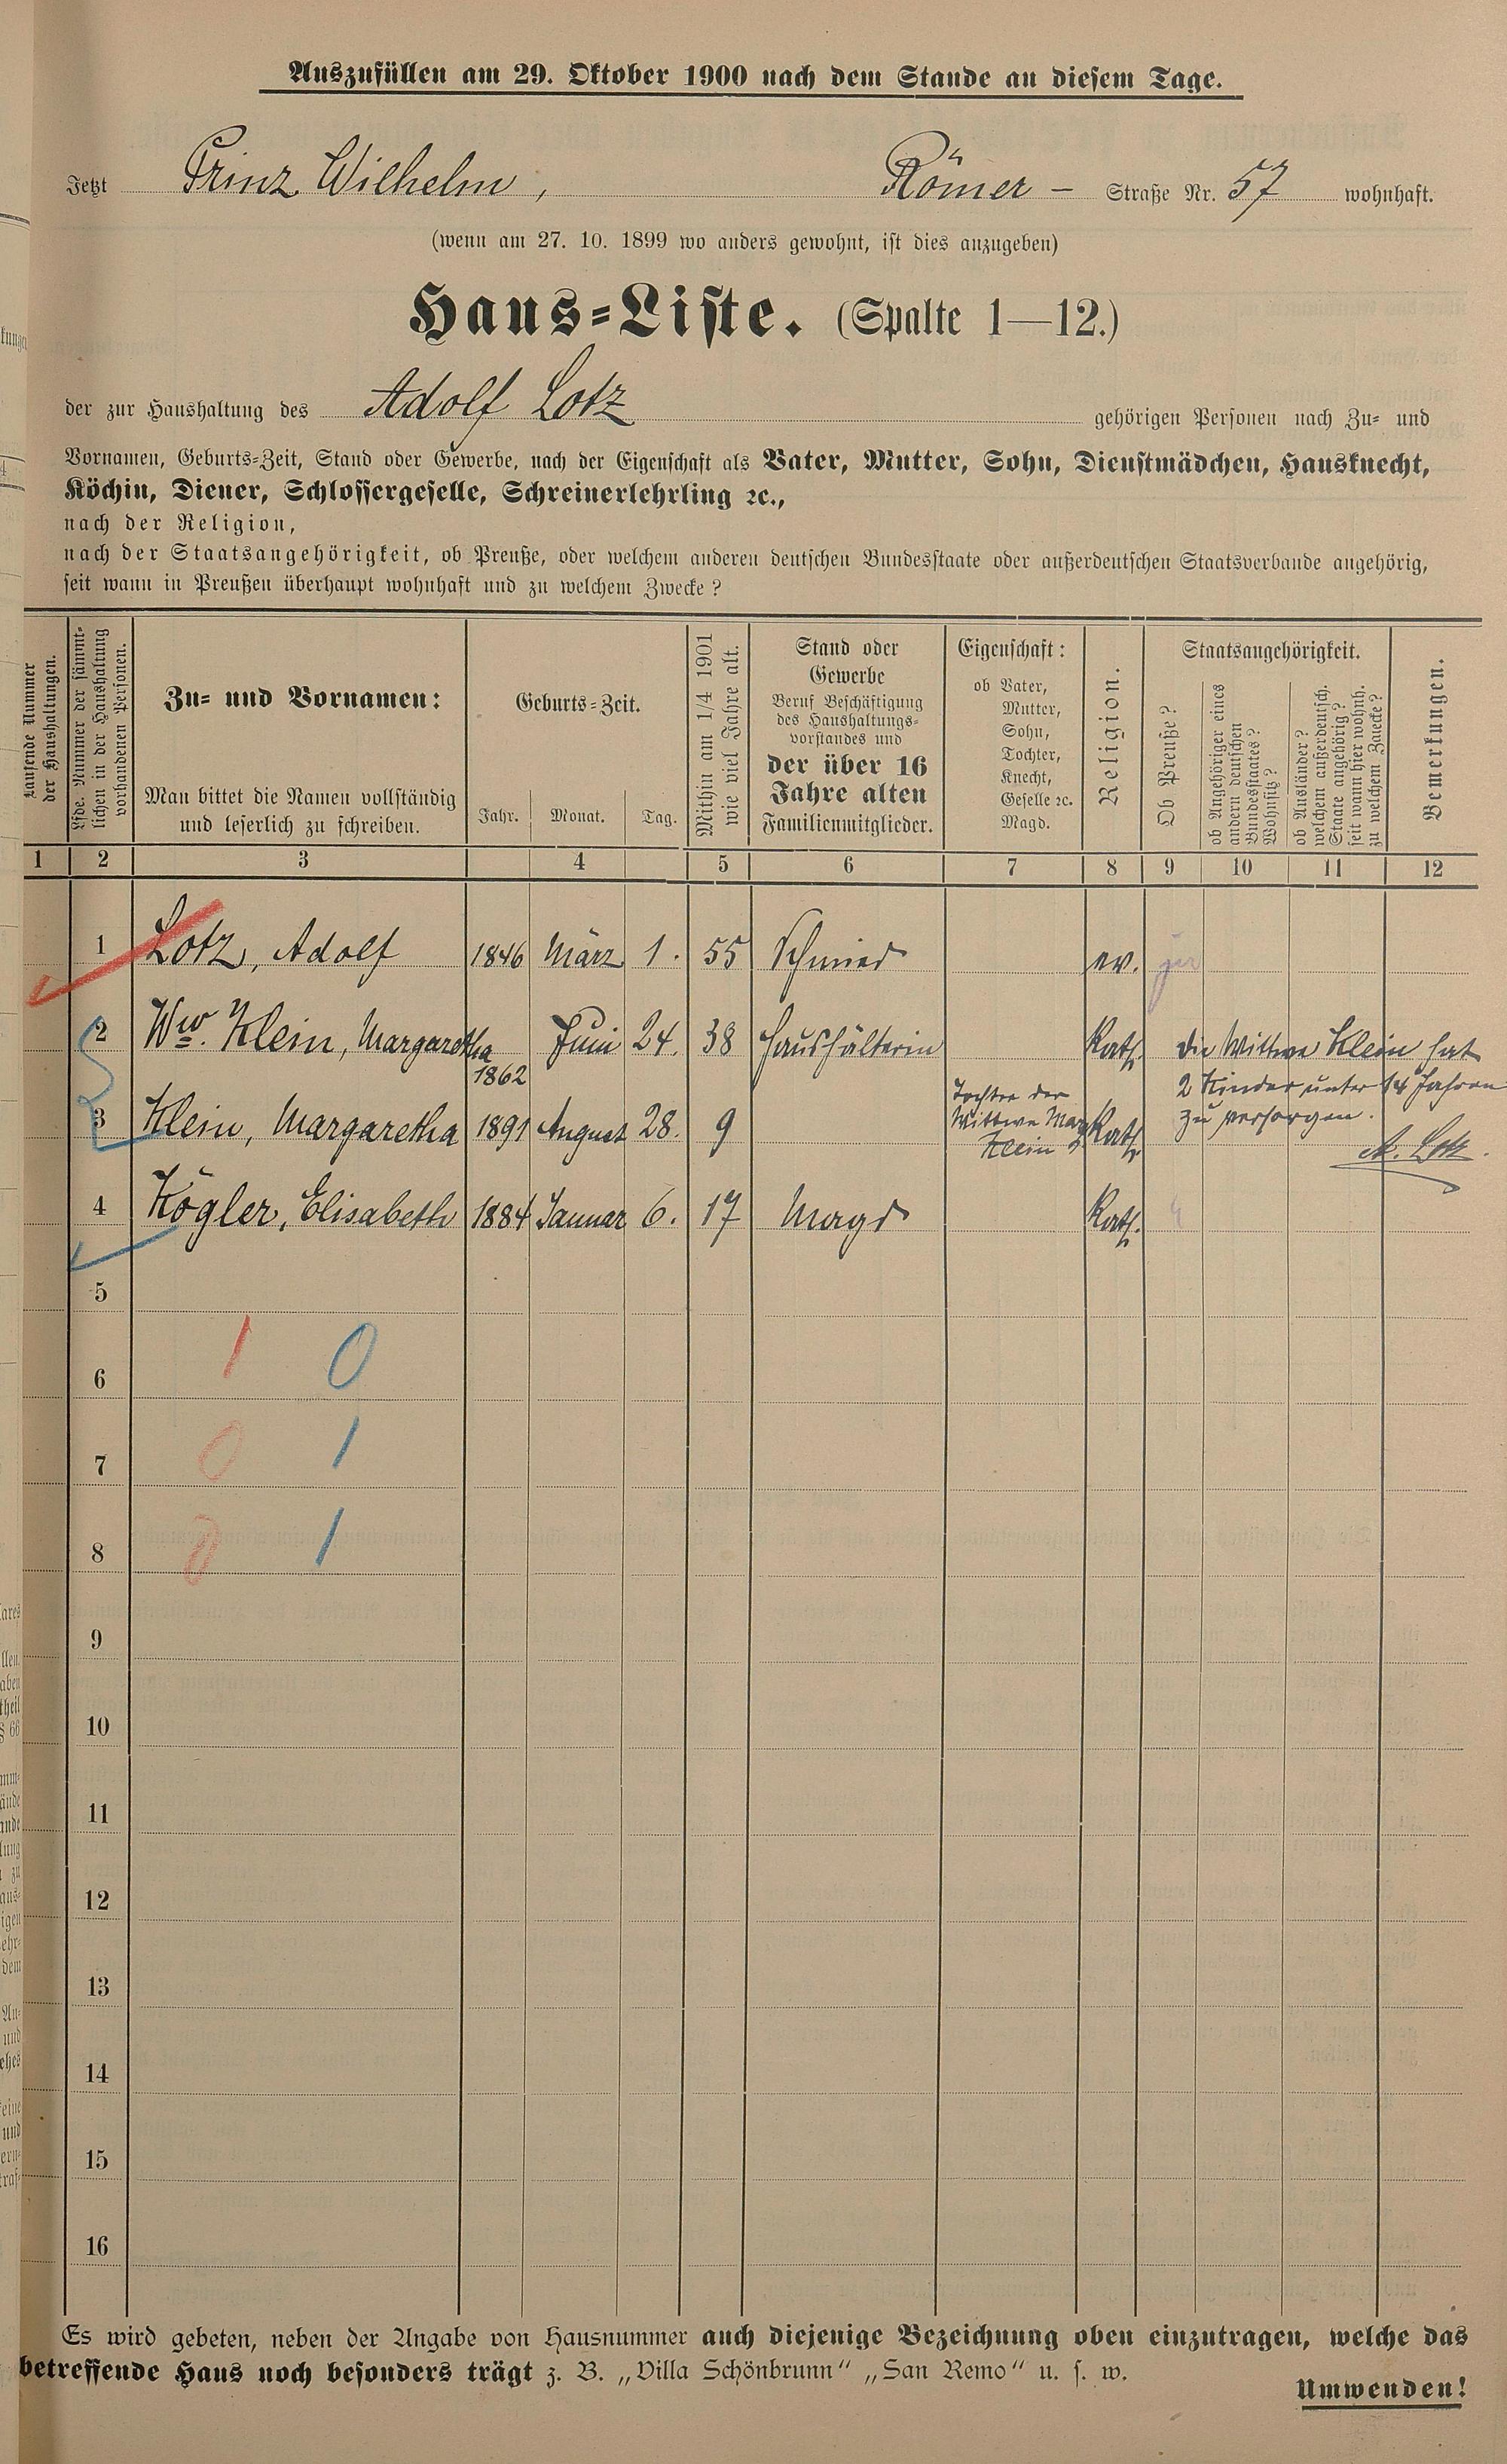 Auszufüllen am 29. Oktober 1900 nach dem Stande an diesem Tage.
Jetzt Prinz Wilhelm, Römer – Straße Nr. 57 wohnhaft.
(wenn am 27. 10. 1899 wo anders gewohnt, ist dies anzugeben)
Haus-Liste. (Spalte 1—12.)
der zur Haushaltung des Adolf Lotz gehörigen Personen nach Zu- und
Vornamen, Geburts-Zeit, Stand oder Gewerbe, nach der Eigenschaft als Vater, Mutter, Sohn, Dienstmädchen, Hausknecht,
Köchin, Diener, Schlossergeselle, Schreinerlehrling ꝛc.,
nach der Religion,
nach der Staatsangehörigkeit, ob Preuße, oder welchem anderen deutschen Bundesstaate oder außerdeutschen Staatsverbande angehörig,
seit wann in Preußen überhaupt wohnhaft und zu welchem Zwecke?
Laufende Nummer
der Haushaltungen.
Lfde. Nummer der sämmt-
lichen in der Haushaltung
vorhandenen Personen.
Zu- und Vornamen:
Man bittet die Namen vollständig
und leserlich zu schreiben.
Geburts-Zeit.
Jahr. Monat. Tag.
Mithin am 1/4 1901
wie viel Jahre alt.
Stand oder
Gewerbe
Beruf Beschäftigung
des Haushaltungs-
vorstandes und
der über 16
Jahre alten
Familienmitglieder.
Eigenschaft:
ob Vater,
Mutter,
Sohn,
Tochter,
Knecht,
Geselle ꝛc.
Magd.
Religion.
Staatsangehörigkeit.
Ob Preuße?
ob Angehöriger eines
andern deutschen
Bundesstaates?
Wohnsitz?
ob Ausländer?
welchem außerdeutsch.
Staate angehörig?
seit wann hier wohnh.
zu welchem Zwecke?
Bemerkungen.
1 2 3 4 5 6 7 8 9 10 11 12
1 Lotz, Adolf 1846 März 1. 55 Schmied ev. ja
2 Ww. Klein, Margaretha 1862 Juni 24. 38 Haushälterin Kath. Die Wittwe Klein hat
2 Kinder unter 14 Jahren
zu versorgen.
A. Lotz.
3 Klein, Margaretha 1891 August 28. 9 Tochter der
Wittwe Marg.
Klein Kath.
4 Kögler, Elisabeth 1884 Januar 6. 17 Magd Kath.
5
1 0
6
0 1
7
0 1
8
9
10
11
12
13
14
15
16
Es wird gebeten, neben der Angabe von Hausnummer auch diejenige Bezeichnung oben einzutragen, welche das
betreffende Haus noch besonders trägt z. B. „Villa Schönbrunn“ „San Remo“ u. s. w.
Umwenden!